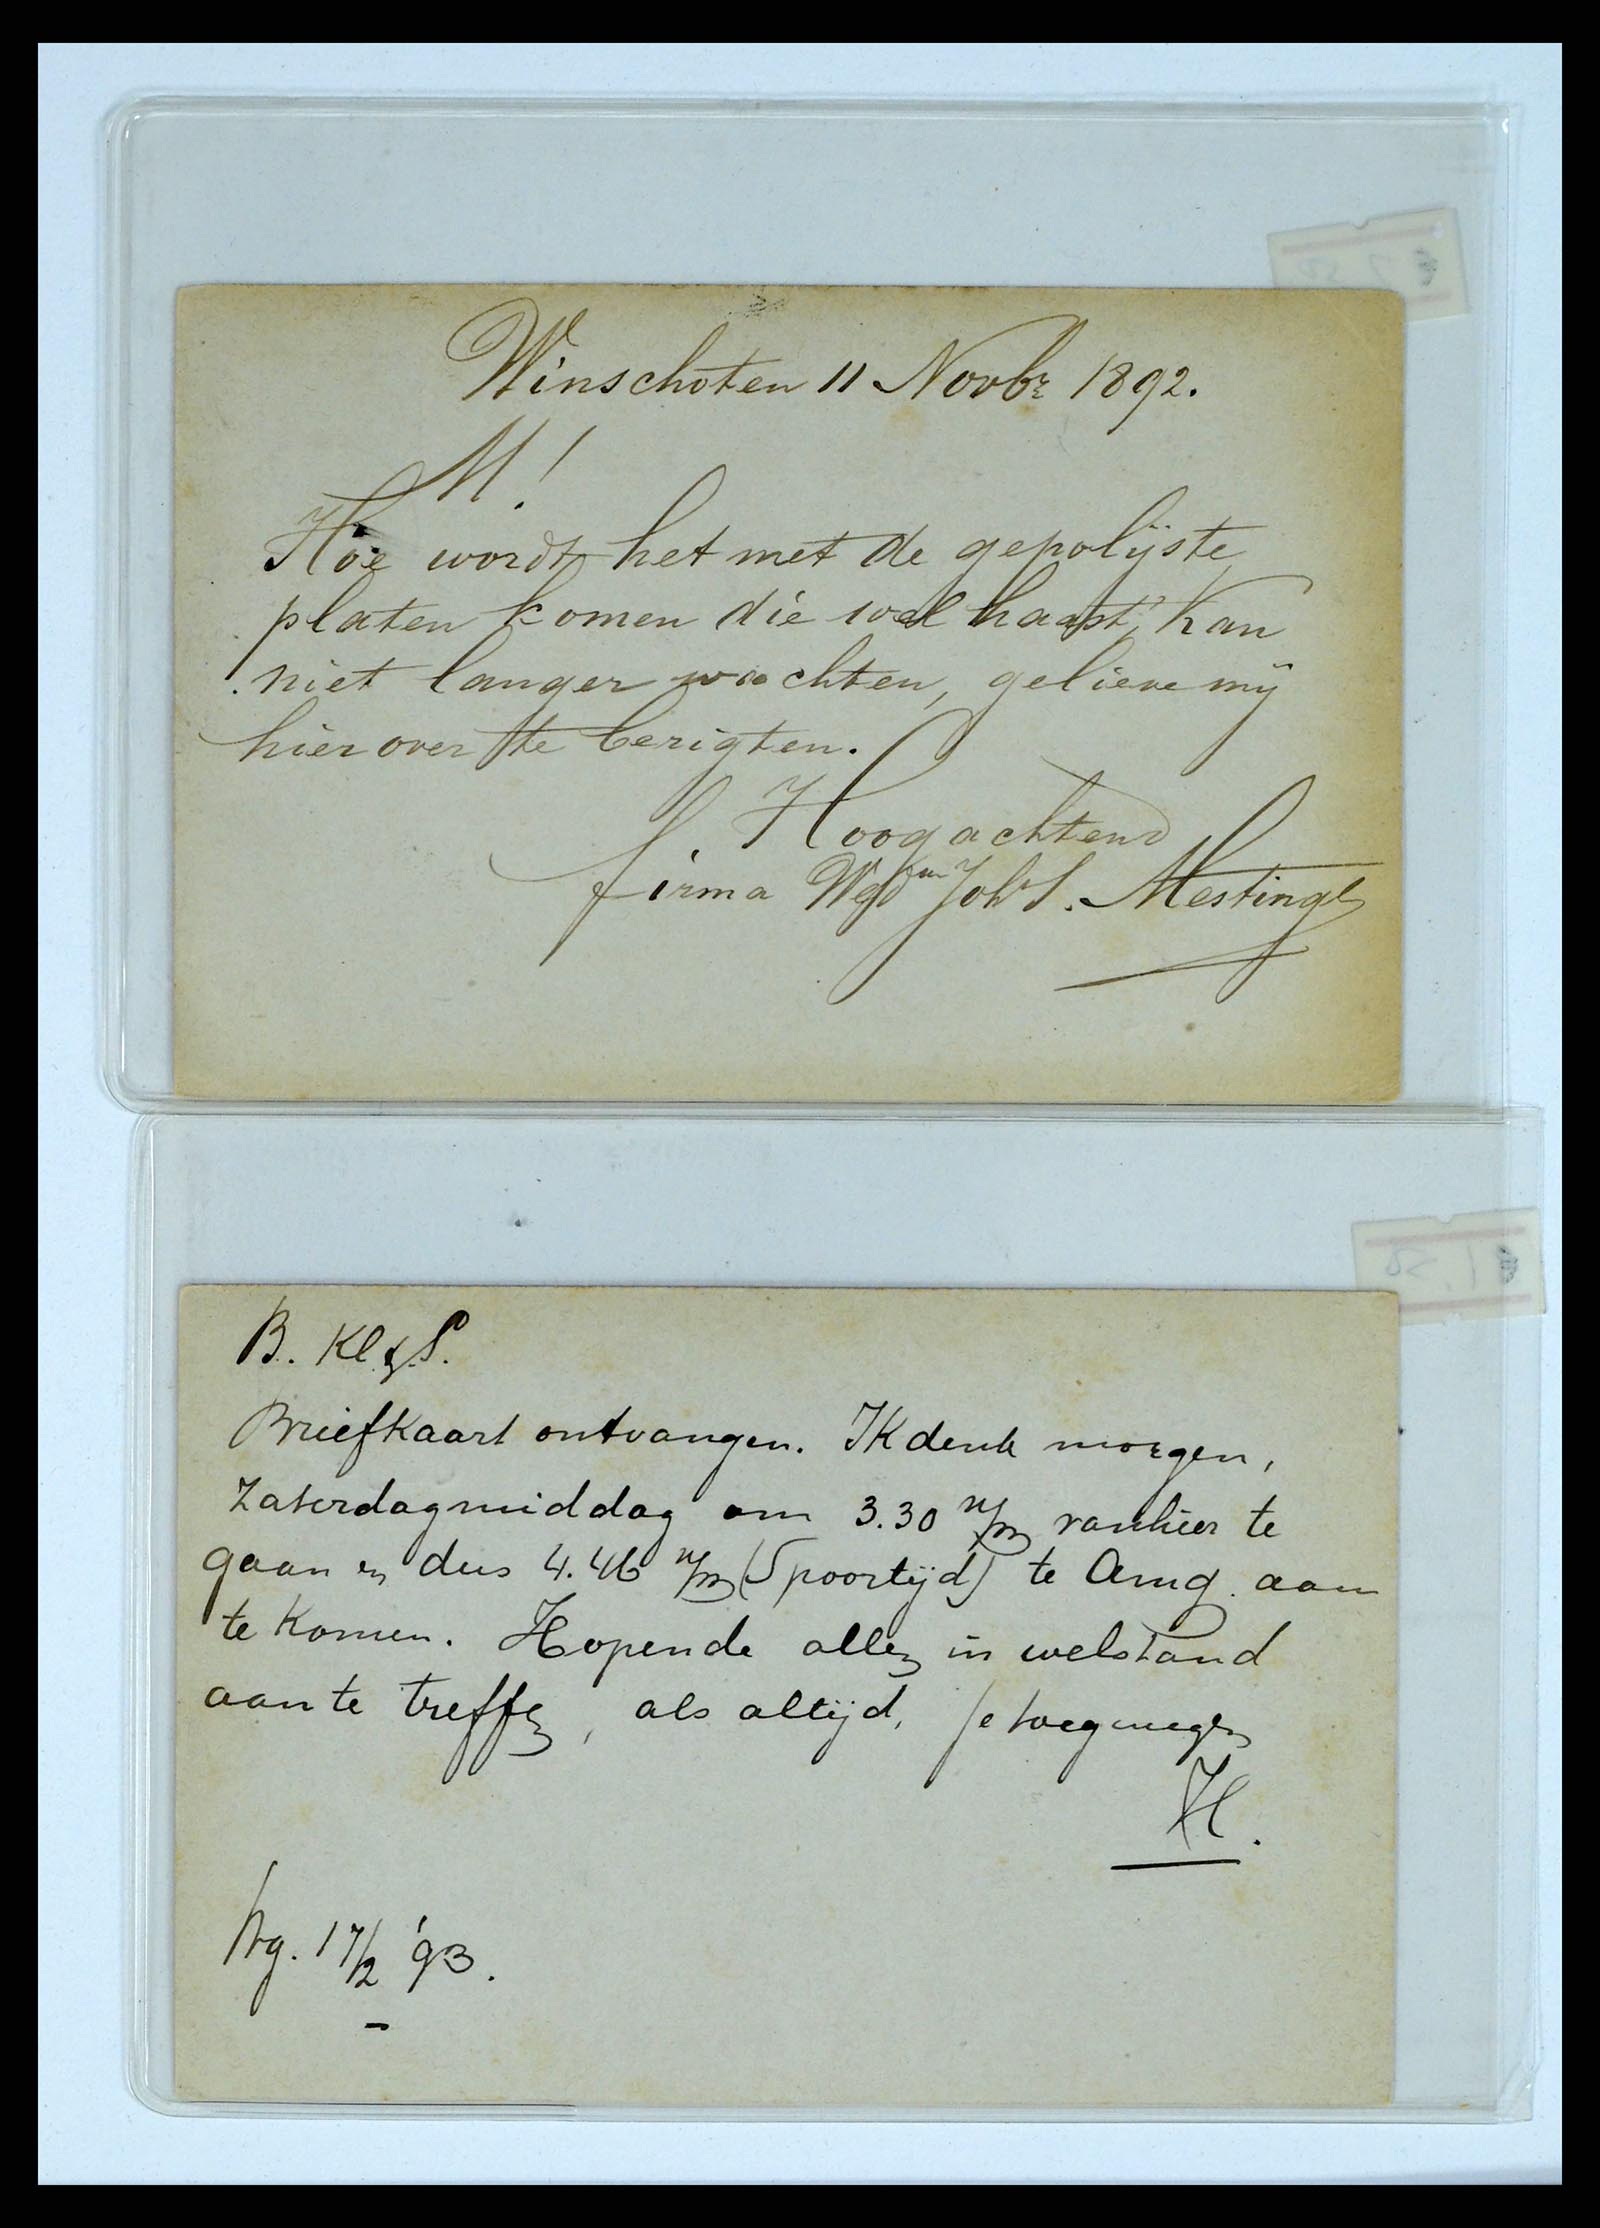 Winschoten 11 Novbr 1892.
M!
Hoe wordt het met de gepolijste
platen komen die wel haast, Kan
niet langer wachten, gelieve mij
hierover te berigten.
Hoogachtend
firma Wed Joh S. Mestingh
B. Kl. & S.
Briefkaart ontvangen. Ik denk morgen,
Zaterdagmiddag om 3.30 n/m van hier te
gaan en dus 4.46 n/m (Spoortijd) te Amg. aan
te komen. Hopende allen in welstand
aan te treffen, als altijd, je toegenegen
H.
17/2 '93.